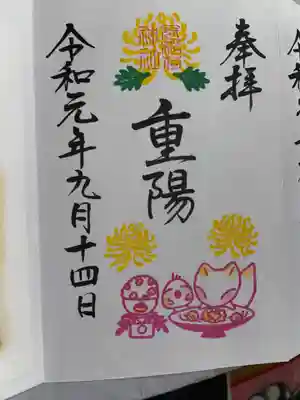 奉拝
重陽
令和元年九月十四日